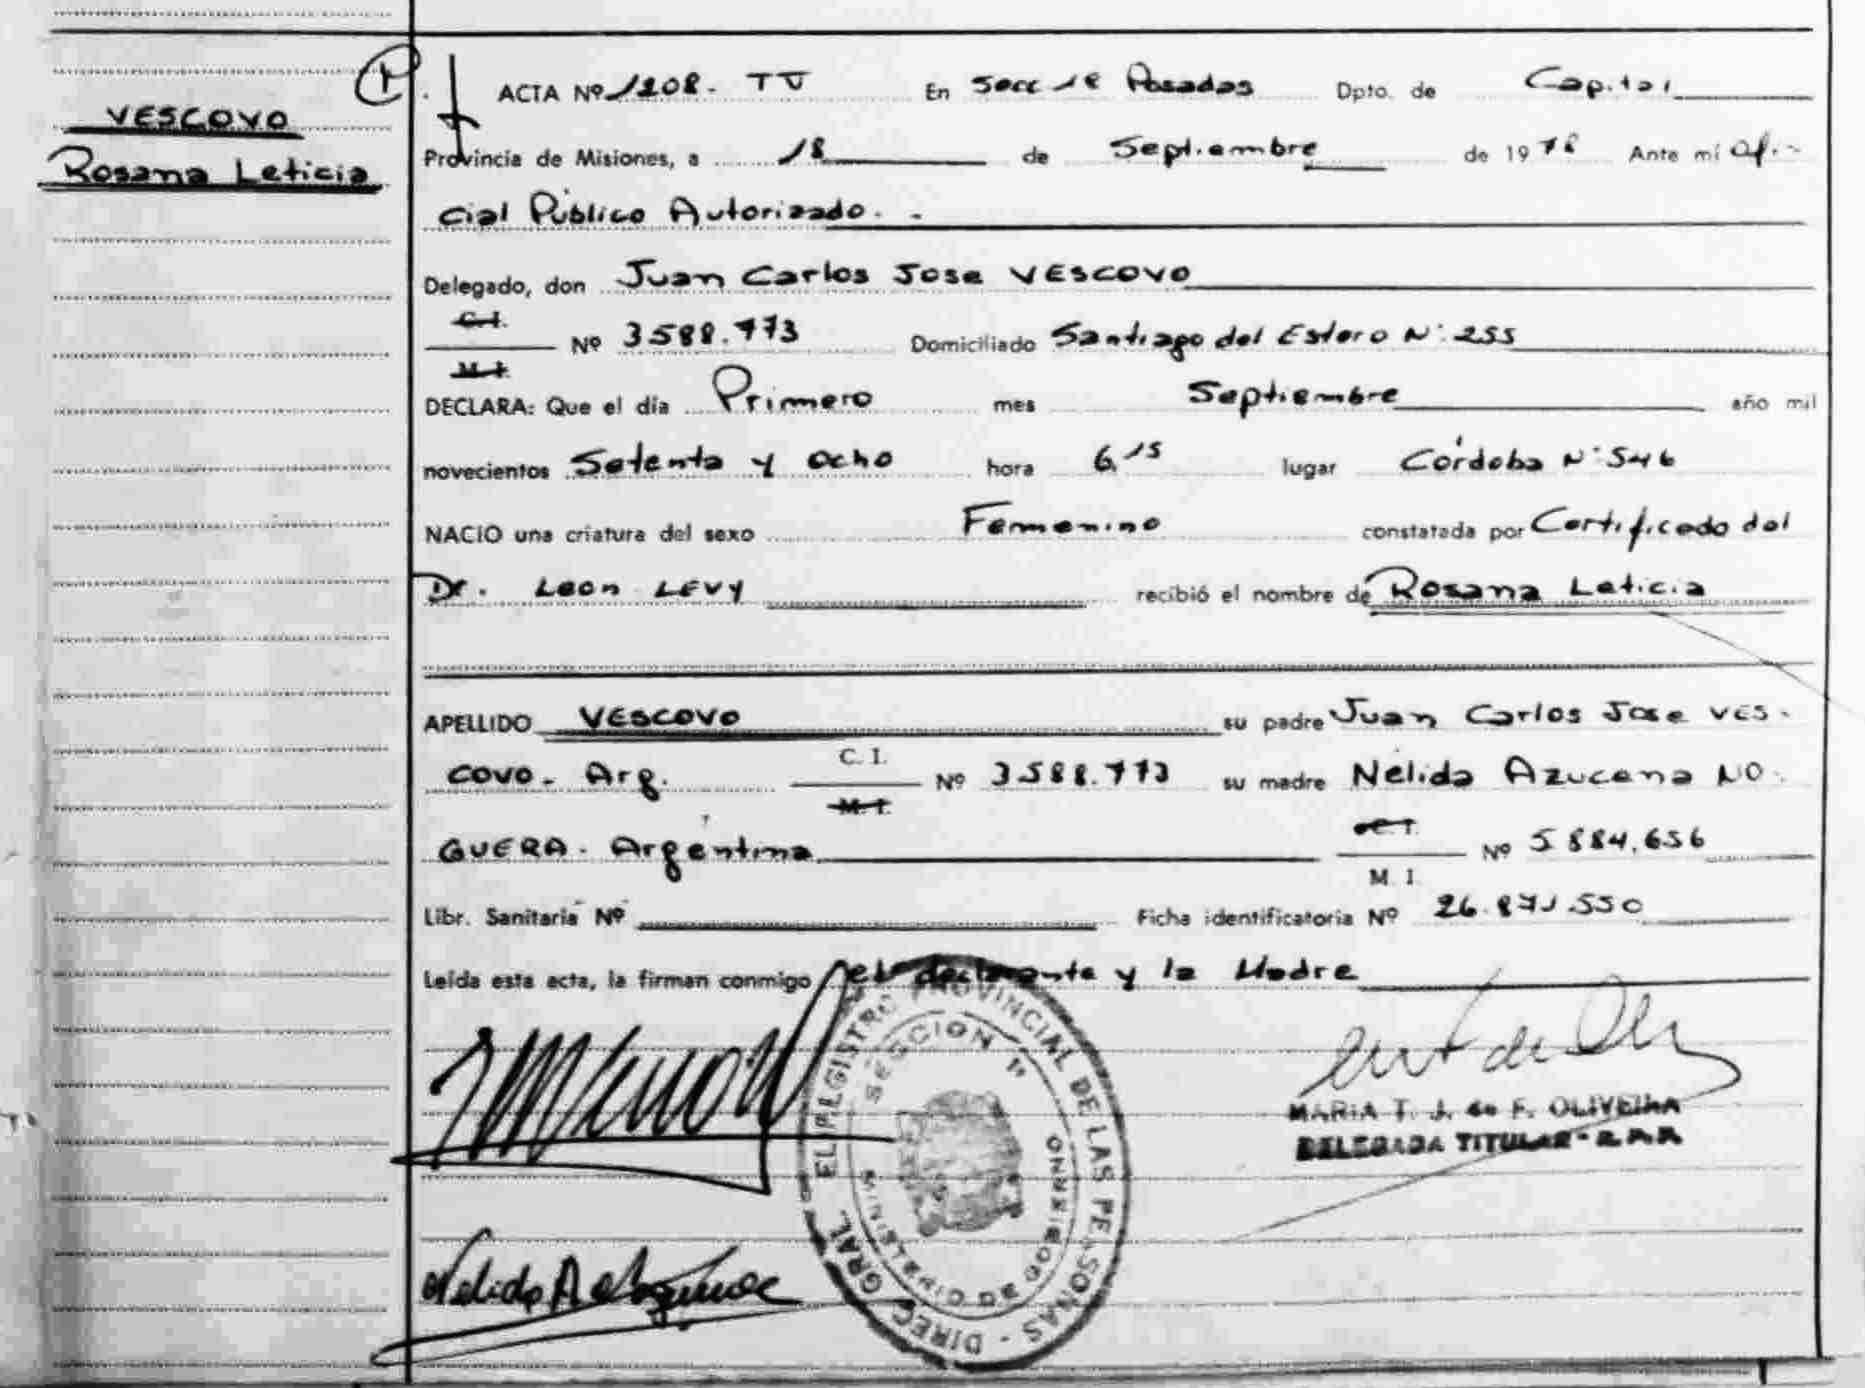 VESCOVO
Rosana Leticia
ACTA Nº 1208. TV En Secc 1ª Posadas Dpto. de Capital
Provincia de Misiones, a 18 de Septiembre de 1978 Ante mí Ofi-
cial Público Autorizado.
Delegado, don Juan Carlos Jose VESCOVO
C.I.
Nº 3.588.773 Domiciliado Santiago del Estero Nº 255
M.I.
DECLARA: Que el día Primero mes Septiembre año mil
novecientos Setenta y Ocho hora 6,15 lugar Córdoba Nº 546
NACIO una criatura del sexo Femenino constatada por Certificado del
Dr. Leon LEVY recibió el nombre de Rosana Leticia
APELLIDO VESCOVO su padre Juan Carlos Jose VES-
COVO- Arg. C. I. Nº 3.588.773 su madre Nélida Azucena NO-
M. I.
GUERA- Argentina C. I. Nº 5.884.656
M. I.
Libr. Sanitaria Nº Ficha identificatoria Nº 26.871.550
Leída esta acta, la firman conmigo el declarante y la Madre
DIREC. GRAL. REGISTRO PROVINCIAL DE LAS PERSONAS
SECCION 1ª
MARIA T. J. de F. OLIVEIRA
DELEGADA TITULAR
Nelida A de